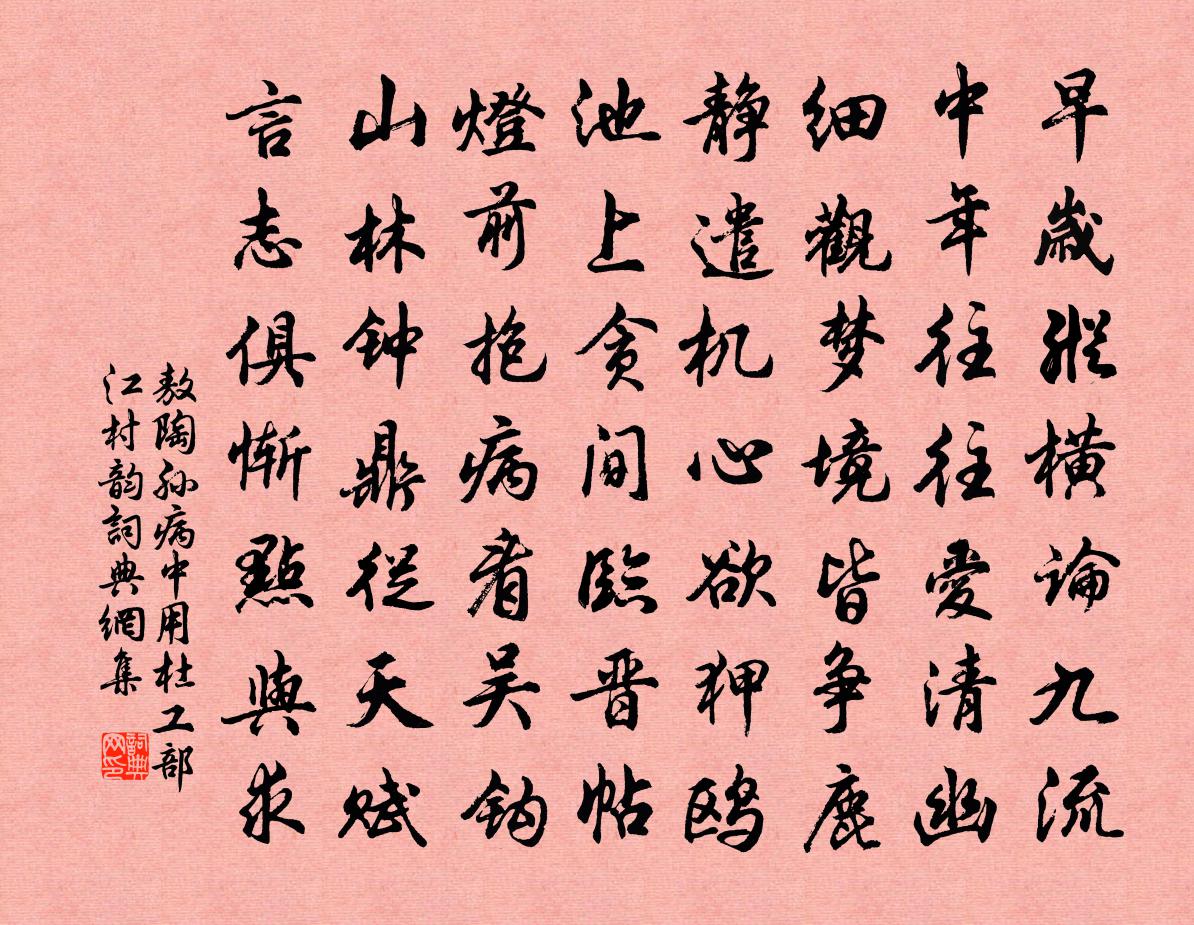 早歲縱橫論九流
中年往往愛清幽
細觀梦境皆争鹿
静遣机心欲狎鸥
池上貪閒臨晋帖
燈前抱病看吴鈎
山林钟鼎從天赋
言志俱慚點與求
敖陶孙病中用杜工部
江村韵詞典網集
詞典网印